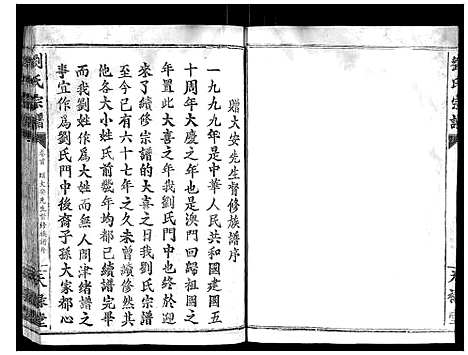 劉氏宗譜
天祿堂
贈大安先生督修族譜序
一九九九年是中華人民共和國建國五
十周年大慶之年也是澳門回歸祖國之
年置此大喜之年我劉氏門中也終於迎
來了續修宗譜的大喜之日我劉氏宗譜
至今已有六十七年之久未曾續修然而
各大小姓氏前幾年均已續譜完畢
而我劉姓作為大姓而無人問津緒譜之
事宜作為劉氏門中後裔子孫大家都心
劉氏宗譜
卷首
贈大安先生督修族譜序
一
天祿堂